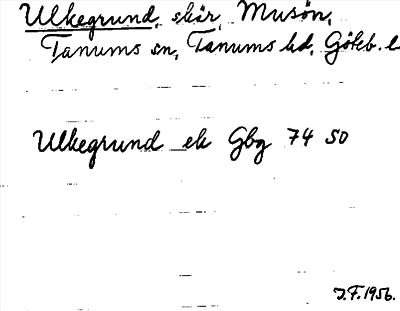 Ulkegrund, skär, Musön,
Tanums sn, Tanums hd, Göteb. l
Ulkegrund ek Gbg 74 SO
J.F. 1956.